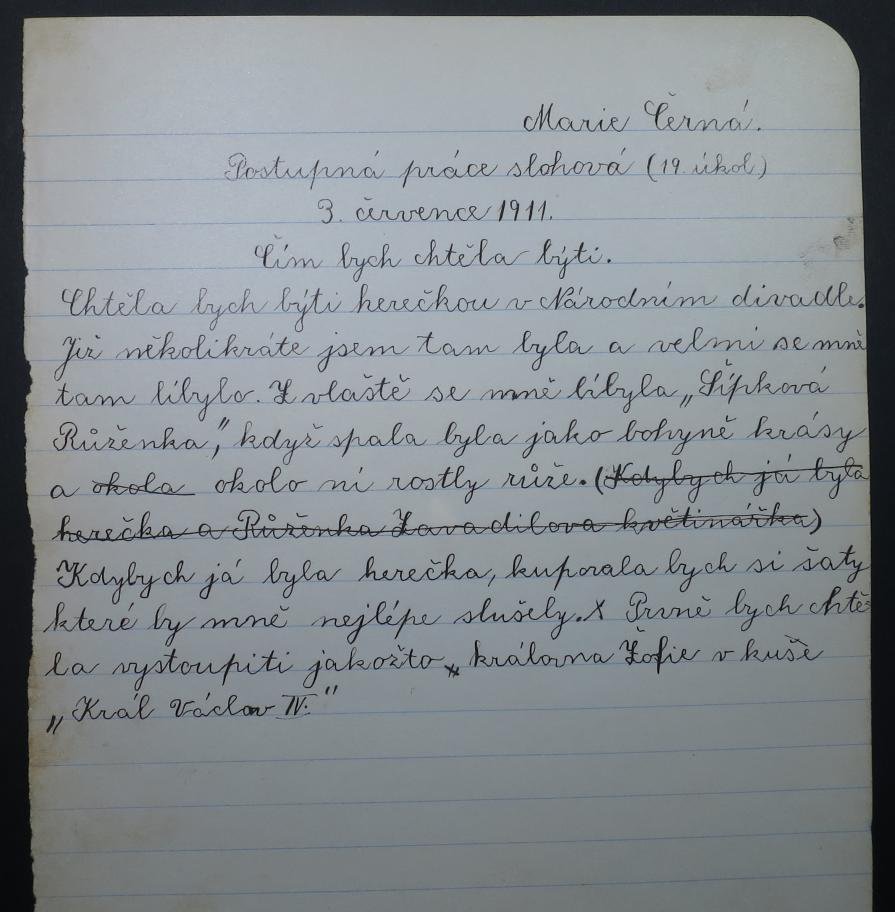 Marie Černá.
Postupná práce slohová (19. úkol)
3. července 1911.
Čím bych chtěla býti.
Chtěla bych býti herečkou v Národním divadle.
Již několikráte jsem tam byla a velmi se mně
tam líbylo. Z vlaště se mně líbyla „Šípková
Růženka", když spala byla jako bohyně krásy
a okola okolo ní rostly růže. (Kdybych já byla
herečka a Růženka Zavadilova květinářka)
Kdybych já byla herečka, kupovala bych si šaty
které by mně nejlépe slušely. X Prvně bych chtě-
la vystoupiti jakožto x královna Žofie v kuše
„Král Václav IV."